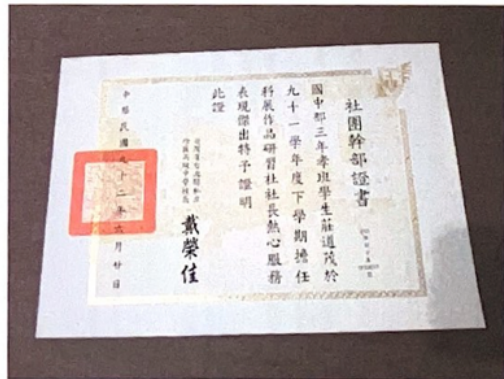 社團幹部證書
國中部三年孝班學生莊道茂於
九十一學年度下學期擔任
科展作品研習社社長熱心服務
表現傑出特予證明
此證
戴榮佳
中華民國九十二年六月廿日